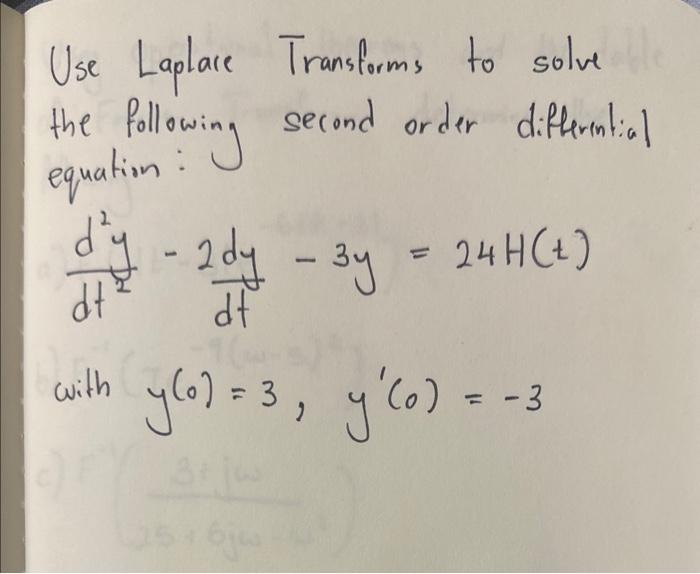 Use Laplace Transforms to solve
the following second order differential
equation:
d²y/dt² - 2dy/dt - 3y = 24H(t)
with y(0) = 3, y'(0) = -3